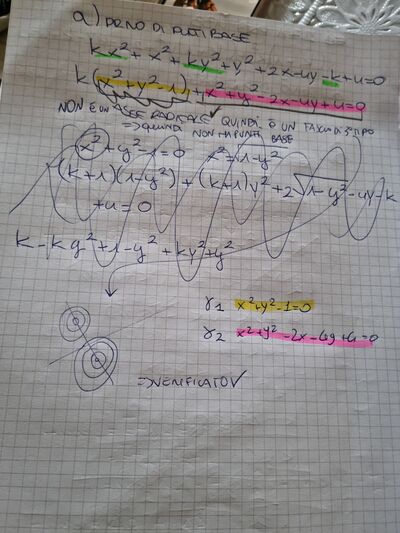 a) PRIVO DI PUNTI BASE
kx² + x² + ky² + y² + 2x - 4y - k + 4 = 0
k(x² + y² - 1) + x² + y² - 2x - 4y + 4 = 0
NON È UN ASSE RADICALE QUINDI È UN FASCIO DI 3° TIPO
⇒ QUINDI NON HA PUNTI BASE
x² + y² - 1 = 0 x² = 1 - y²
(k+1)(1-y²) + (k+1)y² + 2√1-y² - 4y - k
+4 = 0
k - ky² + 1 - y² + ky² + y²
γ1 x²+y²-1=0
γ2 x²+y²-2x-4y+4=0
⇒ VERIFICATO ✓